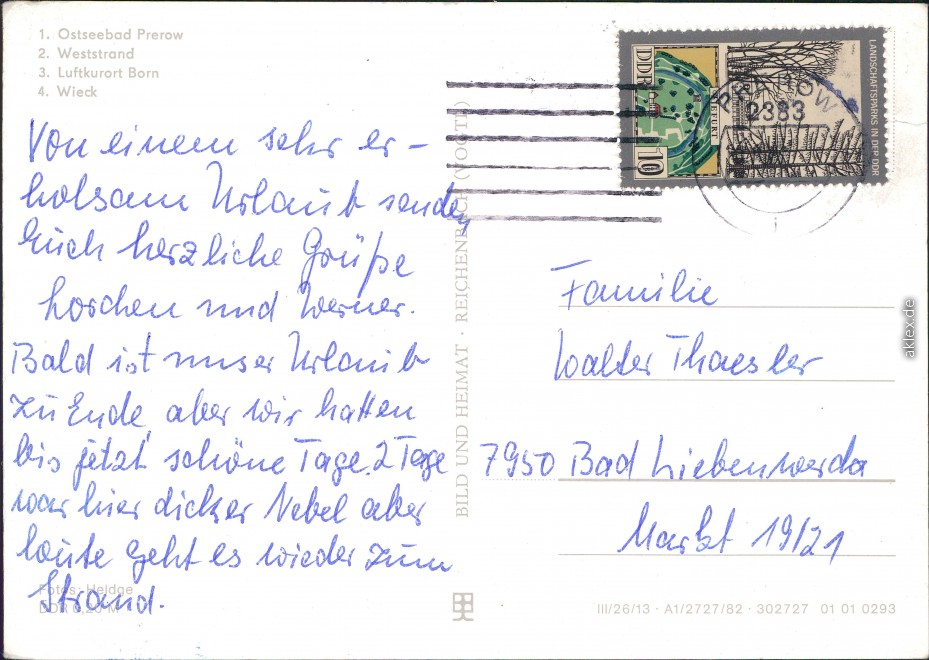 1. Ostseebad Prerow
2. Weststrand
3. Luftkurort Born
4. Wieck
Von einem sehr er-
holsam Urlaub senden
Euch herzliche Grüße
und Werner.
Bald ist unser Urlaub
zu Ende, aber wir hatten
bis jetzt schöne Tage. 2 Tage
war hier dicker Nebel aber
heute geht es wieder zum
Strand.
Fotos: Heldge
DDR 0,20 M
BILD UND HEIMAT · REICHENBACH (VOGTL)
LANDSCHAFTSPARKS IN DER DDR
DDR
10
PREROW
2383
Familie
Walter Thaesler
7950 Bad Liebenwerda
Markt 19/21
III/26/13 · A1/2727/82 · 302727 01 01 0293
aklex.de